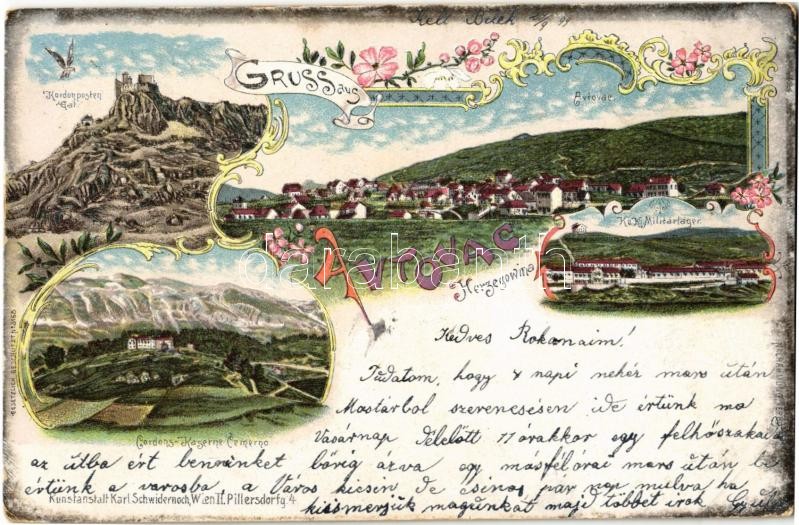 Kelt
Gruss aus
Kordonposten
Gat.
Avtovac.
K.u.K. Militärlager.
Avtovac
Herzegowina
darabanth
Kedves Rokonaim!
Tudatom, hogy 4 napi nehéz mars után
Mostárbol szerencsésen ide értünk ma
Vasárnap Délelőtt 11 órakkor egy felhőszakadás
Cordons-Kaserne Čemerno
az útba ért bennünket bőrig ázva egy másfélórai mars után be
értünk a városba a Város kicsin de csinos pár nap mulva ha
Kunstanstalt Karl Schwidernoch, Wien II. Pillersdorfg. 4.
kiismerjük magunkat majd többet irok Gyula
GESETZLICH GESCHÜTZT